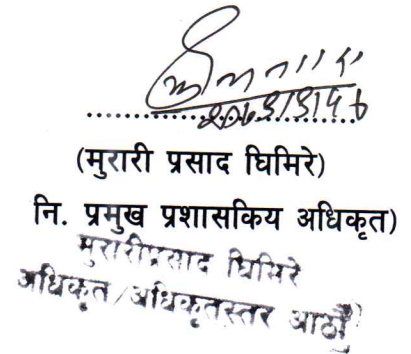 (मुरारी प्रसाद घिमिरे)
नि. प्रमुख प्रशासकिय अधिकृत)
मुरारीप्रसाद घिमिरे
अधिकृत/अधिकृतस्तर आठौं